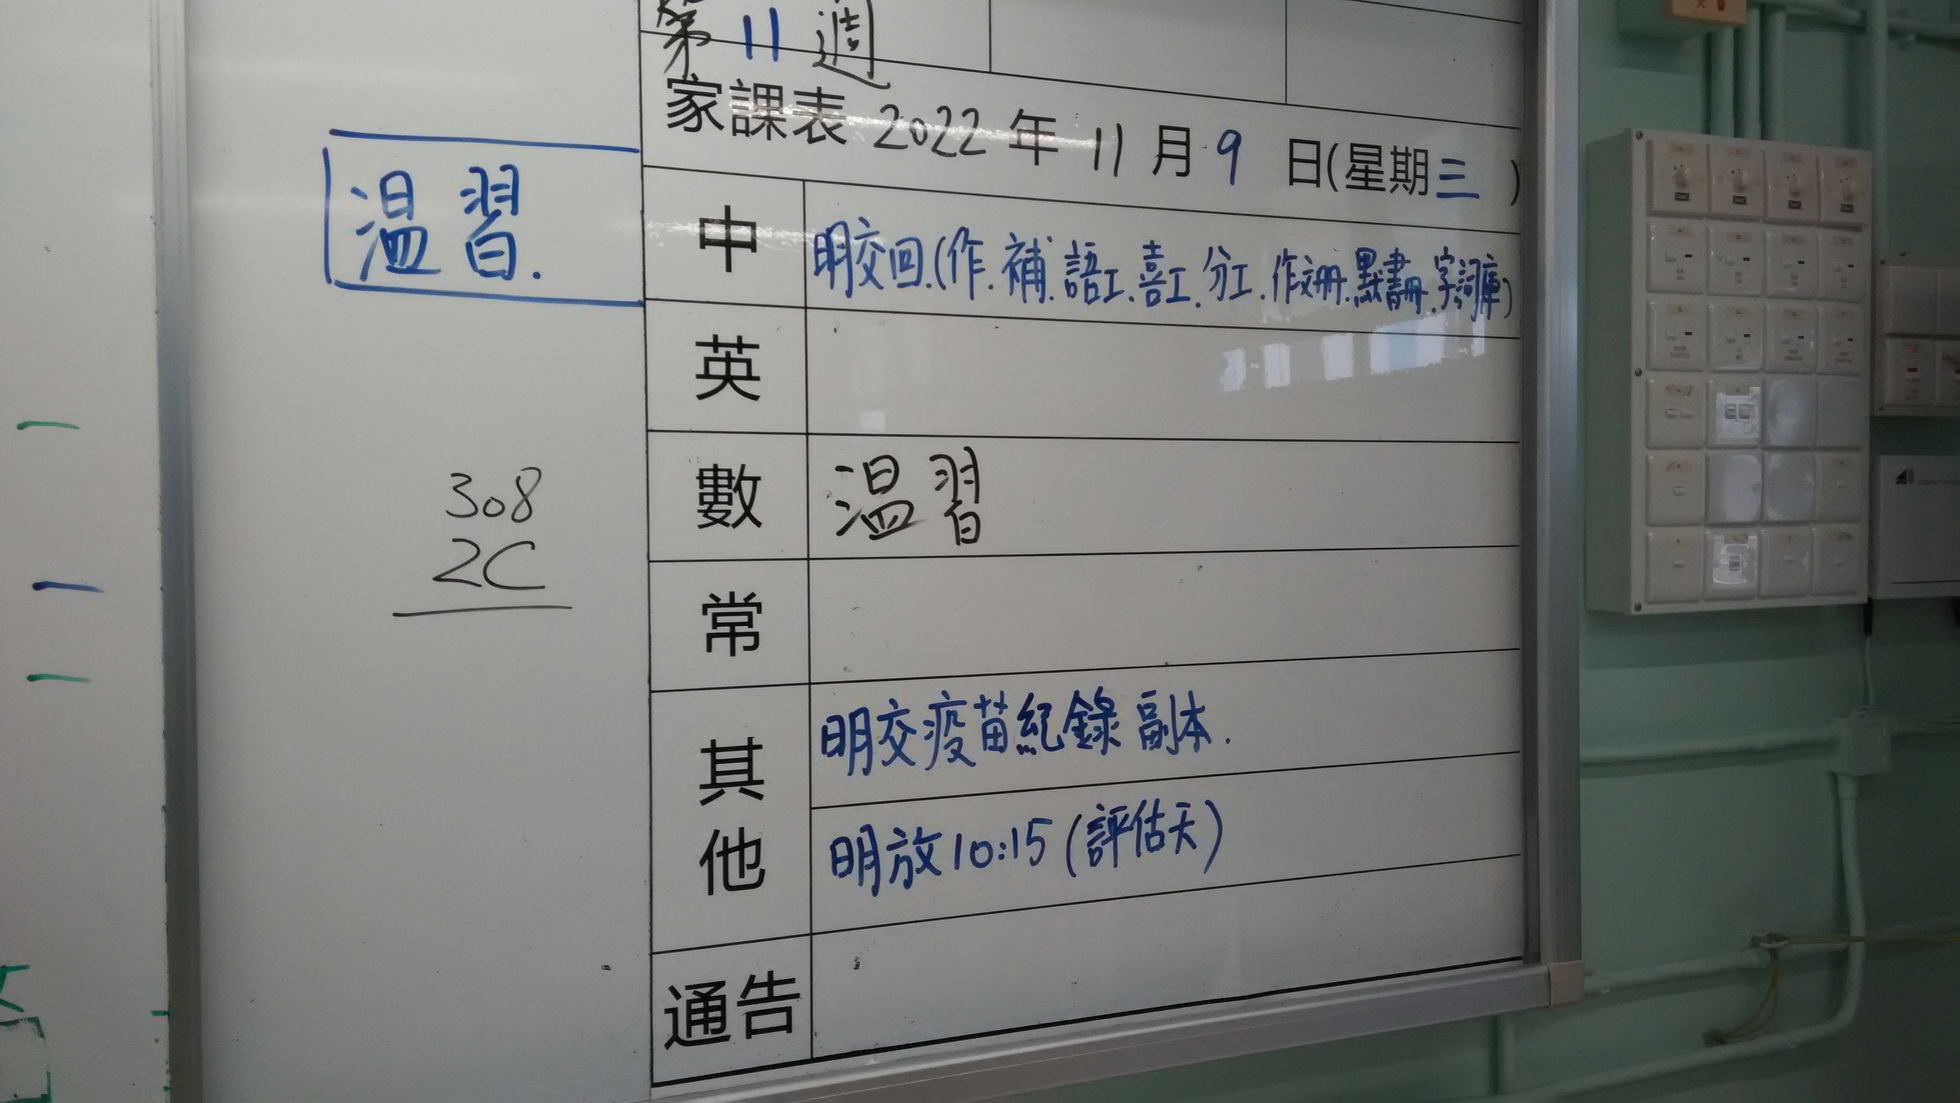 第 11 週
家課表 2022 年 11 月 9 日(星期三)
溫習.
中 明交回.(作.補.語工.喜工.分工.作文冊.默書冊.字詞庫)
英
數 溫習
308
2C
常
其他 明交疫苗紀錄副本.
明放10:15(評估天)
通告